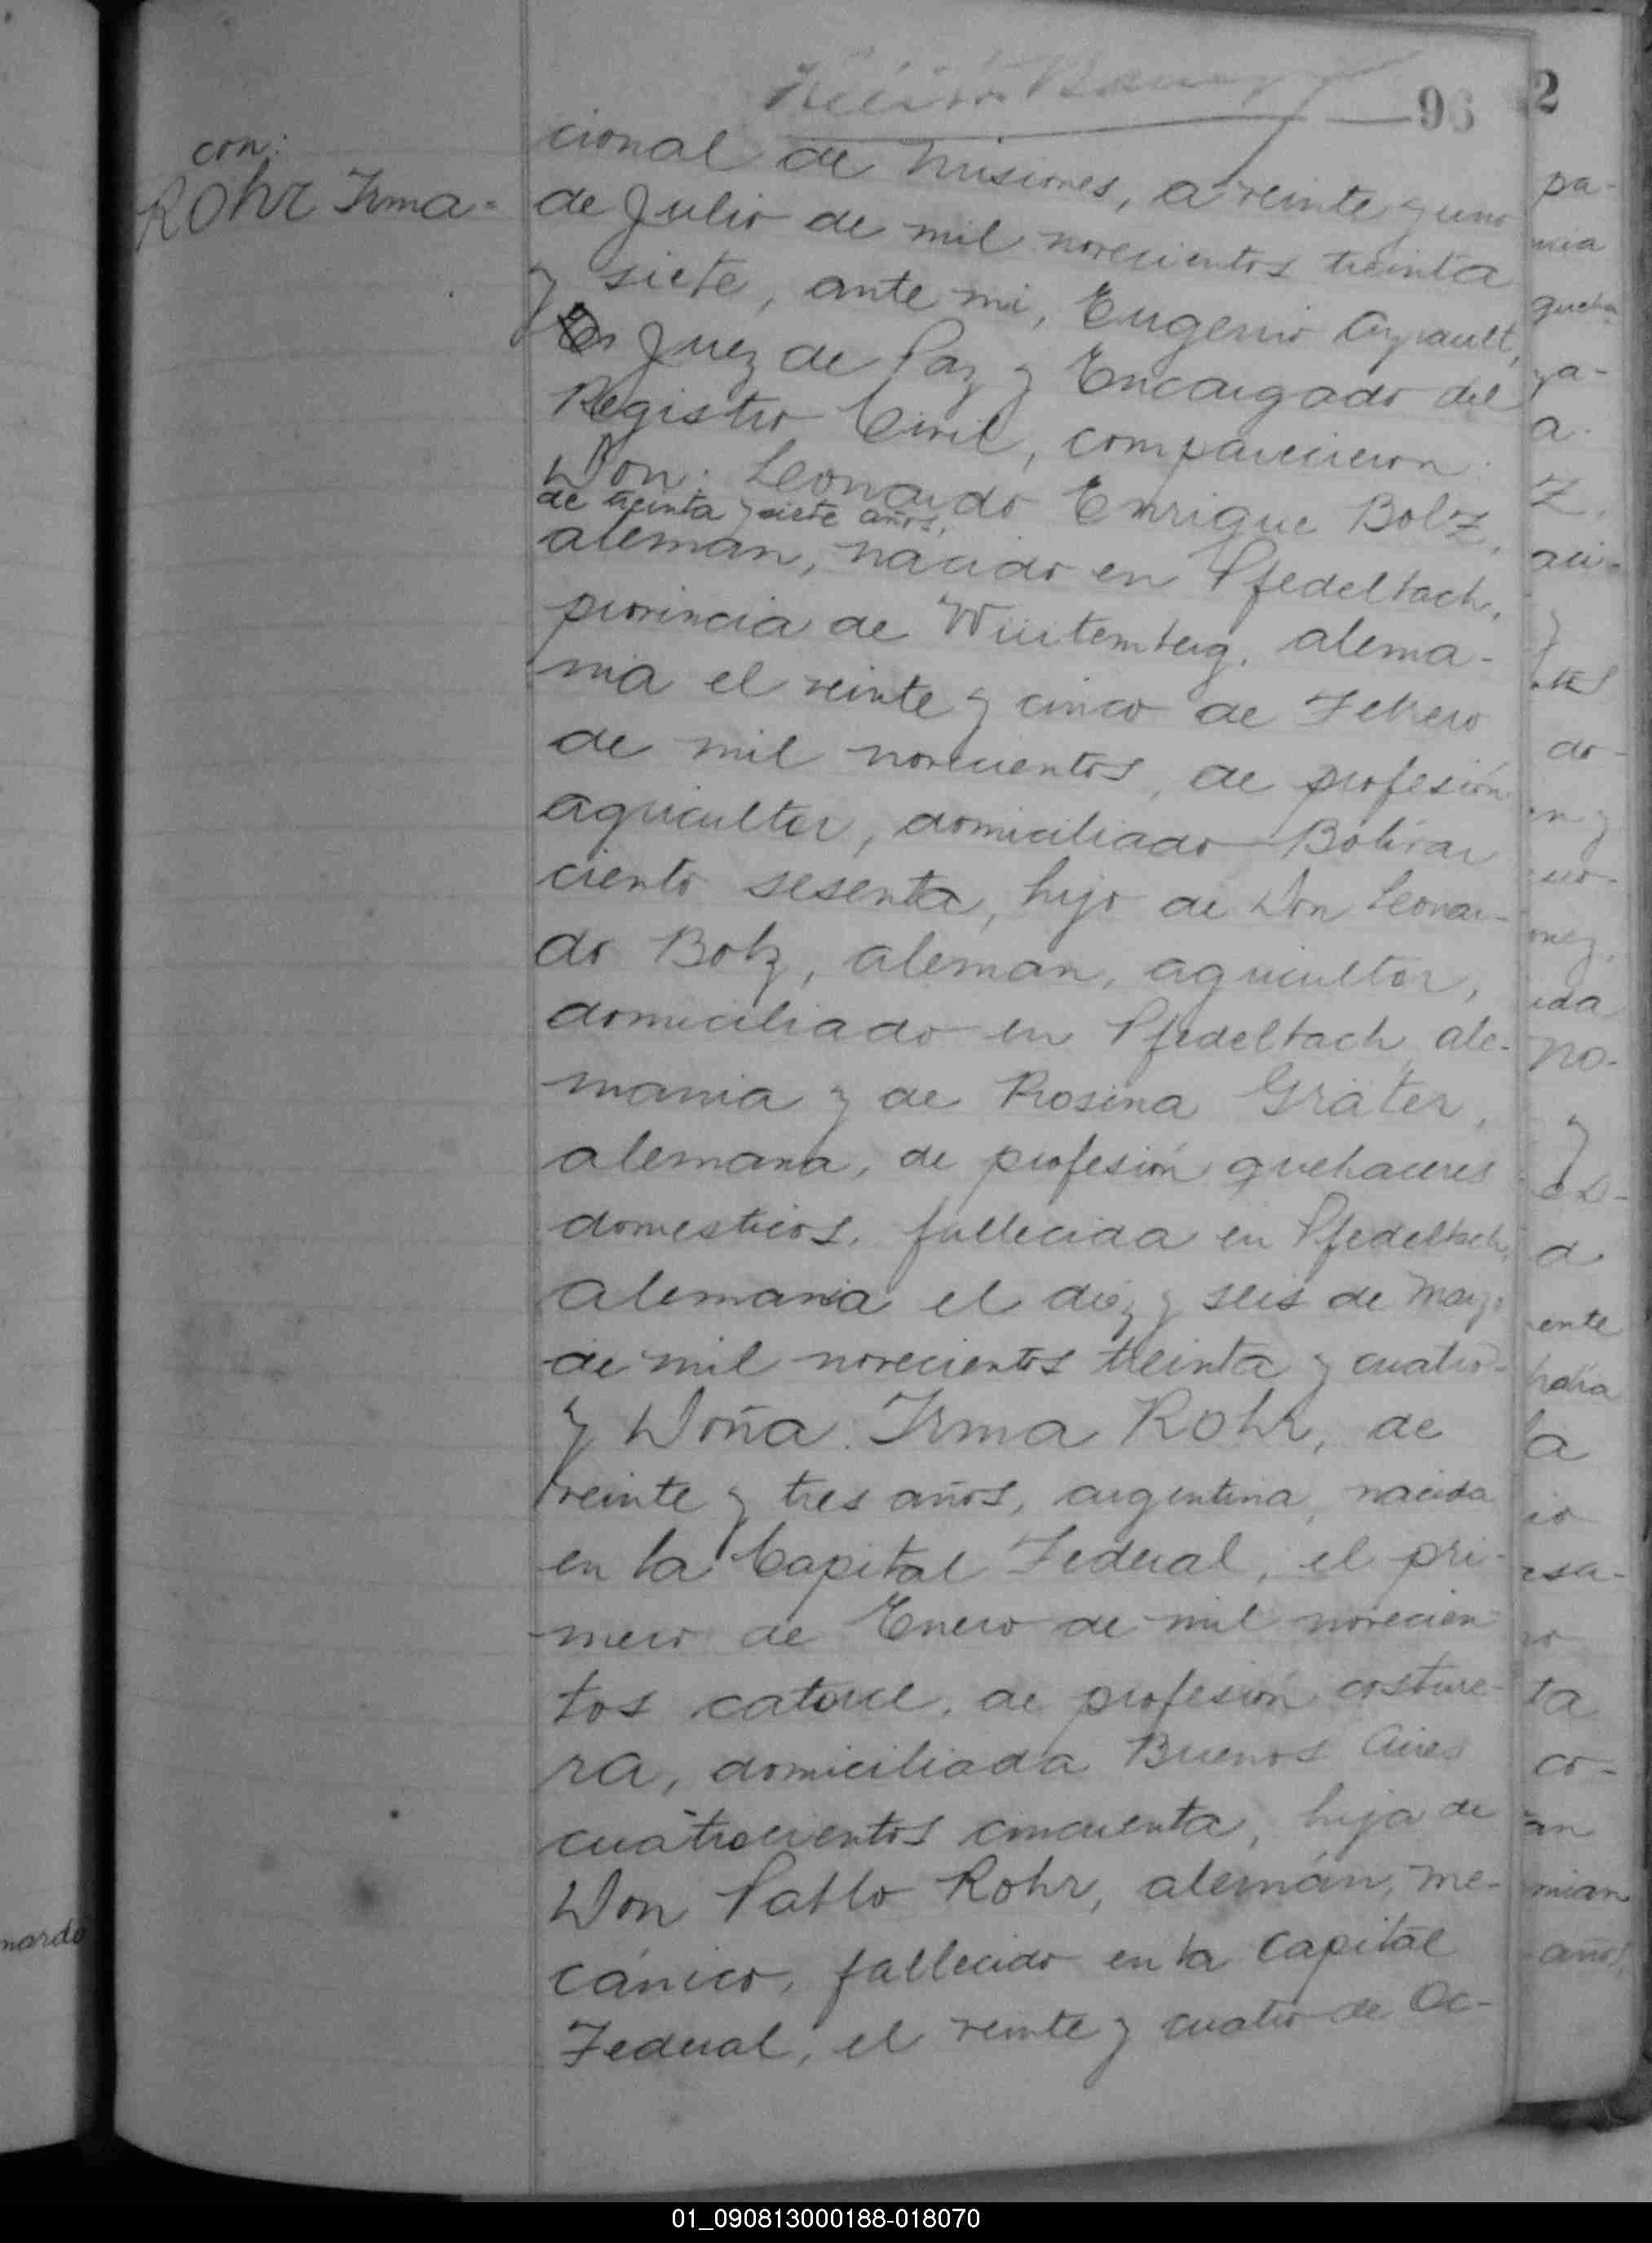 96
con:
Rohr Irma-
cional de Misiones, a veinte y uno
de Julio de mil novecientos treinta
y siete, ante mi, Eugenio
Juez de Paz y Encargado del
Registro Civil, comparecieron:
Don: Leonardo Enrique Bolz,
de treinta y siete años,
aleman, nacido en Pfedelbach,
provincia de Würtemberg, alema-
nia el veinte y cinco de Febrero
de mil novecientos, de profesión
agricultor, domiciliado Bolivar
ciento sesenta, hijo de Don Leonar-
do Bolz, aleman, agricultor,
domiciliado en Pfedelbach, ale-
mania y de Rosina Gräter,
alemana, de profesión quehaceres
domesticos, fallecida en Pfedelbach,
alemania el diez y seis de Mayo
de mil novecientos treinta y cuatro-
y Doña: Irma Rohr, de
veinte y tres años, argentina, nacida
en la Capital Federal, el pri-
mero de Enero de mil novecien-
tos catorce, de profesión costure-
ra, domiciliada Buenos Aires
cuatrocientos cincuenta, hija de
Don Pablo Rohr, alemán, me-
cánico, fallecido en la Capital
Federal, el veinte y cuatro de Oc-
nardo
2
pa-
ya-
a.
Z,
do-
en y
ida
no-
y
a
ente
habia
la
io
esa-
ro
ta
co-
an
mian
años,
01_090813000188-018070